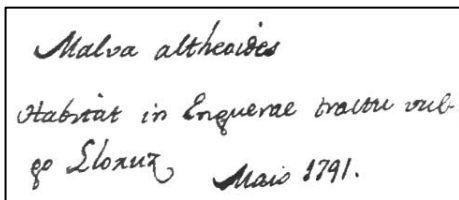 Malva altheoides
Habitat in Enguerae tractu vul-
go Llonuz Maio 1791.